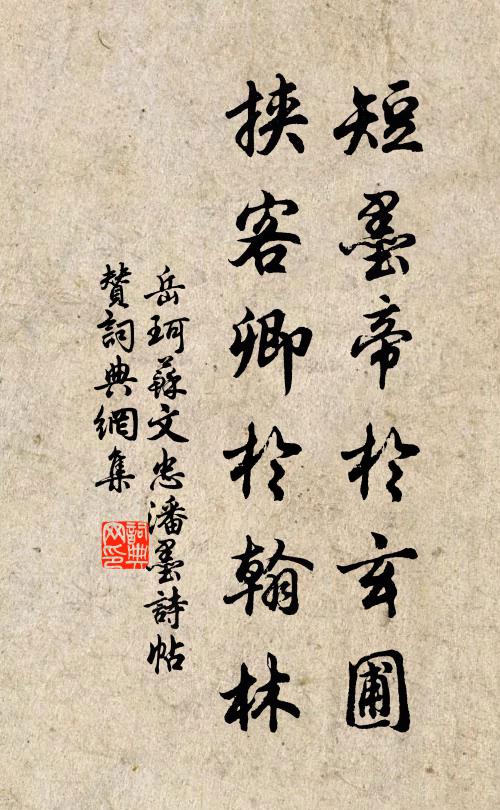 短墨帝於玄圃
挟客卿於翰林
岳珂蘇文忠潘墨詩帖
贊詞典網集
詞典
网印